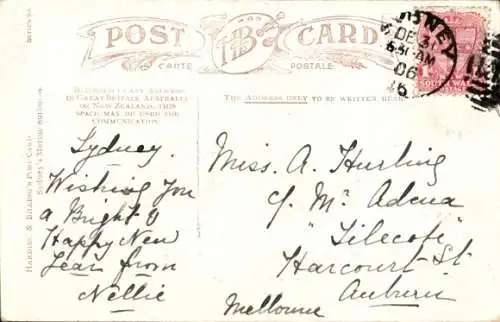 POST CARD
H&B
CARTE POSTALE
IF DESIRED CAN BE USED
IN GREAT BRITAIN, AUSTRALIA
OR NEW ZEALAND, THIS
SPACE MAY BE USED FOR
COMMUNICATION
THE ADDRESS ONLY TO BE WRITTEN HERE
SYDNEY
DE 31
6 30 AM
06
46
SOUTH WALES
POSTAGE
Sydney.
Wishing You
a Bright &
Happy New
Year from
Nellie
Miss A. Hurling
c/. Mc Adena
"Silecote"
Harcourt St
Auburn
Melbourne